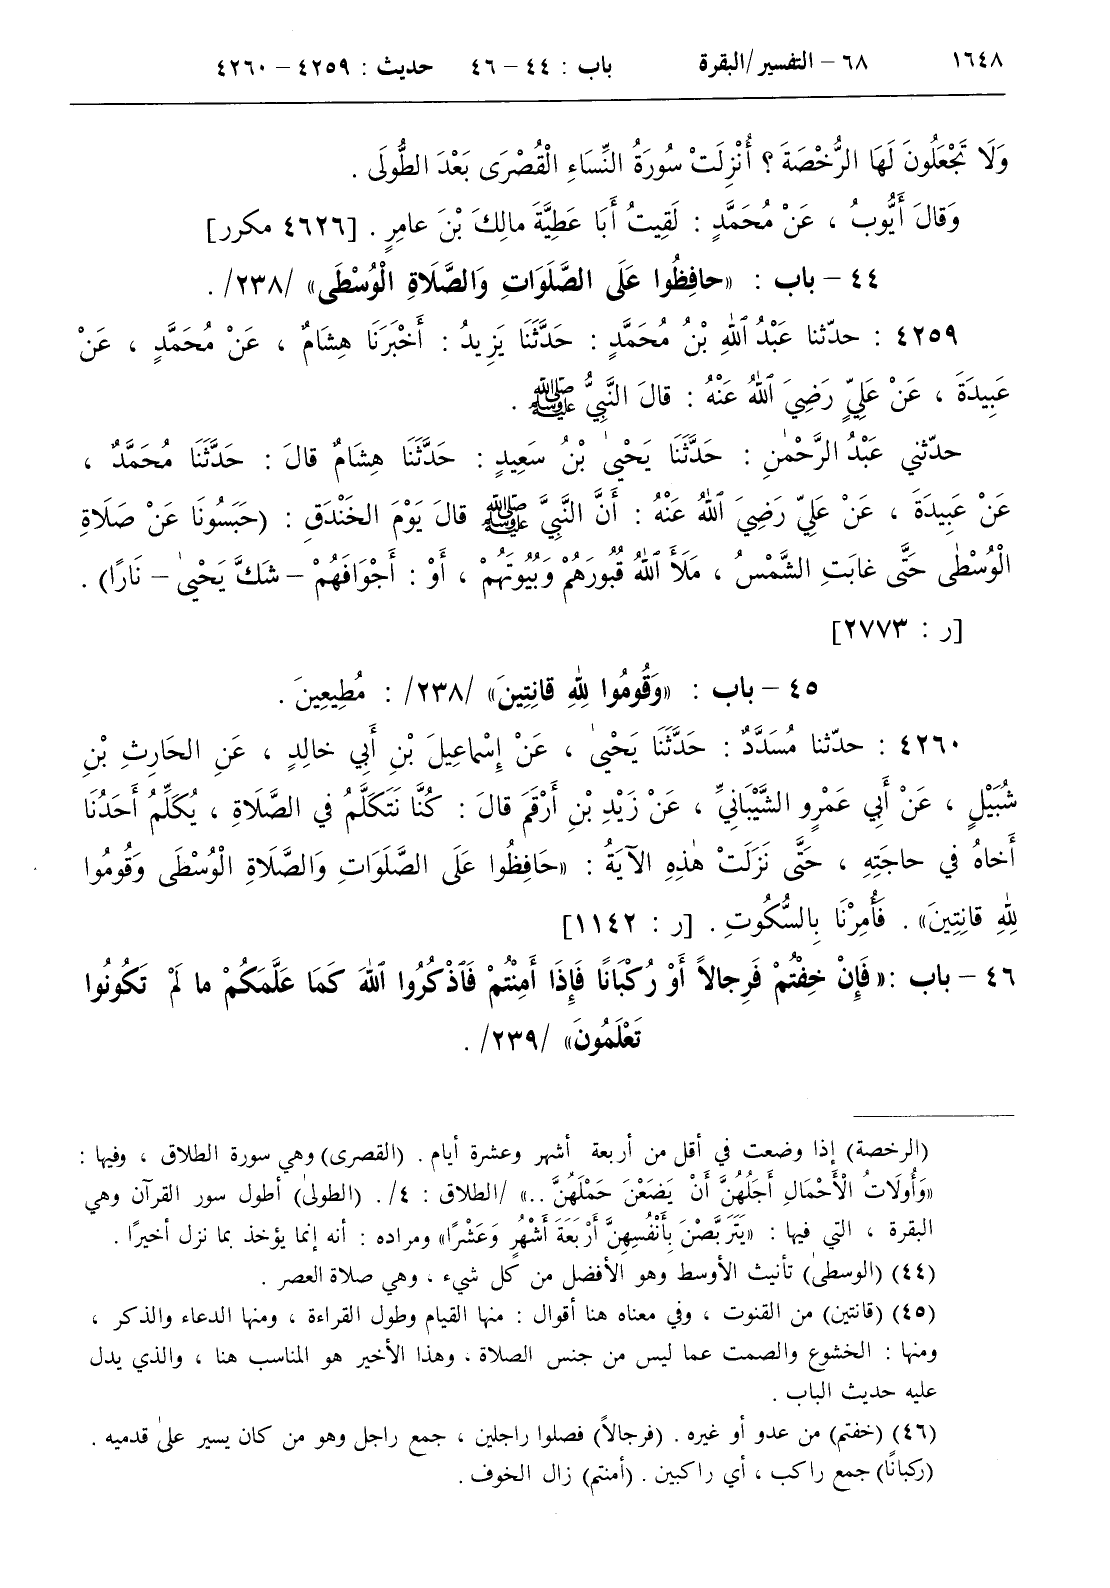 ١٦٤٨ ٦٨ – التفسير/البقرة باب : ٤٤ – ٤٦ حديث : ٤٢٥٩ – ٤٢٦٠
وَلَا تَجْعَلُونَ لَهَا الرُّخْصَةَ ؟ أُنْزِلَتْ سُورَةُ النِّسَاءِ الْقُصْرَى بَعْدَ الطُّولَى .
وَقالَ أَيُّوبُ ، عَنْ مُحَمَّدٍ : لَقِيتُ أَبَا عَطِيَّةَ مالِكَ بْنَ عامِرٍ . [٤٦٢٦ مكرر]
٤٤ – باب : «حافِظُوا عَلَى الصَّلَوَاتِ وَالصَّلَاةِ الْوُسْطَى» /٢٣٨/ .
٤٢٥٩ : حدّثنا عَبْدُ ٱللهِ بْنُ مُحَمَّدٍ : حَدَّثَنَا يَزِيدُ : أَخْبَرَنَا هِشَامٌ ، عَنْ مُحَمَّدٍ ، عَنْ
عَبِيدَةَ ، عَنْ عَلِيٍّ رَضِيَ ٱللهُ عَنْهُ : قالَ النَّبِيُّ ﷺ .
حدّثني عَبْدُ الرَّحْمٰنِ : حَدَّثَنَا يَحْيىٰ بْنُ سَعِيدٍ : حَدَّثَنَا هِشَامٌ قالَ : حَدَّثَنَا مُحَمَّدٌ ،
عَنْ عَبِيدَةَ ، عَنْ عَلِيّ رَضِيَ ٱللهُ عَنْهُ : أَنَّ النَّبِيَّ ﷺ قالَ يَوْمَ الخَنْدَقِ : (حَبَسُونَا عَنْ صَلَاةِ
الْوُسْطٰى حَتَّى غابَتِ الشَّمْسُ ، مَلَأَ ٱللهُ قُبُورَهُمْ وَبُيُوتَهُمْ ، أَوْ : أَجْوَافَهُمْ – شَكَّ يَحْيىٰ – نَارًا) .
[ر : ٢٧٧٣]
٤٥ – باب : «وَقُومُوا لِلهِ قانِتِينَ» /٢٣٨/ : مُطِيعِينَ .
٤٢٦٠ : حدّثنا مُسَدَّدٌ : حَدَّثَنَا يَحْيىٰ ، عَنْ إِسْماعِيلَ بْنِ أَبِي خالِدٍ ، عَنِ الحَارِثِ بْنِ
شُبَيْلٍ ، عَنْ أَبِي عَمْرٍو الشَّيْبَانِيِّ ، عَنْ زَيْدِ بْنِ أَرْقَمَ قالَ : كُنَّا نَتَكَلَّمُ في الصَّلَاةِ ، يُكَلِّمُ أَحَدُنَا
أَخاهُ في حاجَتِهِ ، حَتَّى نَزَلَتْ هٰذِهِ الآيَةُ : «حَافِظُوا عَلَى الصَّلَوَاتِ وَالصَّلَاةِ الْوُسْطَى وَقُومُوا
لِلهِ قانِتِينَ» . فَأُمِرْنَا بِالسُّكُوتِ . [ر : ١١٤٢]
٤٦ – باب :«فَإِنْ خِفْتُمْ فَرِجالاً أَوْ رُكْبَانًا فَإِذَا أَمِنْتُمْ فَٱذْكُرُوا ٱللهَ كَمَا عَلَّمَكُمْ ما لَمْ تَكُونُوا
تَعْلَمُونَ» /٢٣٩/ .
(الرخصة) إذا وضعت في أقل من أربعة أشهر وعشرة أيام . (القصرى) وهي سورة الطلاق ، وفيها :
«وَأُولَاتُ الْأَحْمَالِ أَجَلُهُنَّ أَنْ يَضَعْنَ حَمْلَهُنَّ ..» /الطلاق : ٤/. (الطولىٰ) أطول سور القرآن وهي
البقرة ، التي فيها : «يَتَرَبَّصْنَ بِأَنْفُسِهِنَّ أَرْبَعَةَ أَشْهُرٍ وَعَشْرًا» ومراده : أنه إنما يؤخذ بما نزل أخيرًا .
(٤٤) (الوسطىٰ) تأنيث الأوسط وهو الأفضل من كل شيء ، وهي صلاة العصر .
(٤٥) (قانتين) من القنوت ، وفي معناه هنا أقوال : منها القيام وطول القراءة ، ومنها الدعاء والذكر ،
ومنها : الخشوع والصمت عما ليس من جنس الصلاة ، وهذا الأخير هو المناسب هنا ، والذي يدل
عليه حديث الباب .
(٤٦) (خفتم) من عدو أو غيره . (فرجالاً) فصلوا راجلين ، جمع راجل وهو من كان يسير علىٰ قدميه .
(ركبانًا) جمع راكب ، أي راكبين . (أمنتم) زال الخوف .